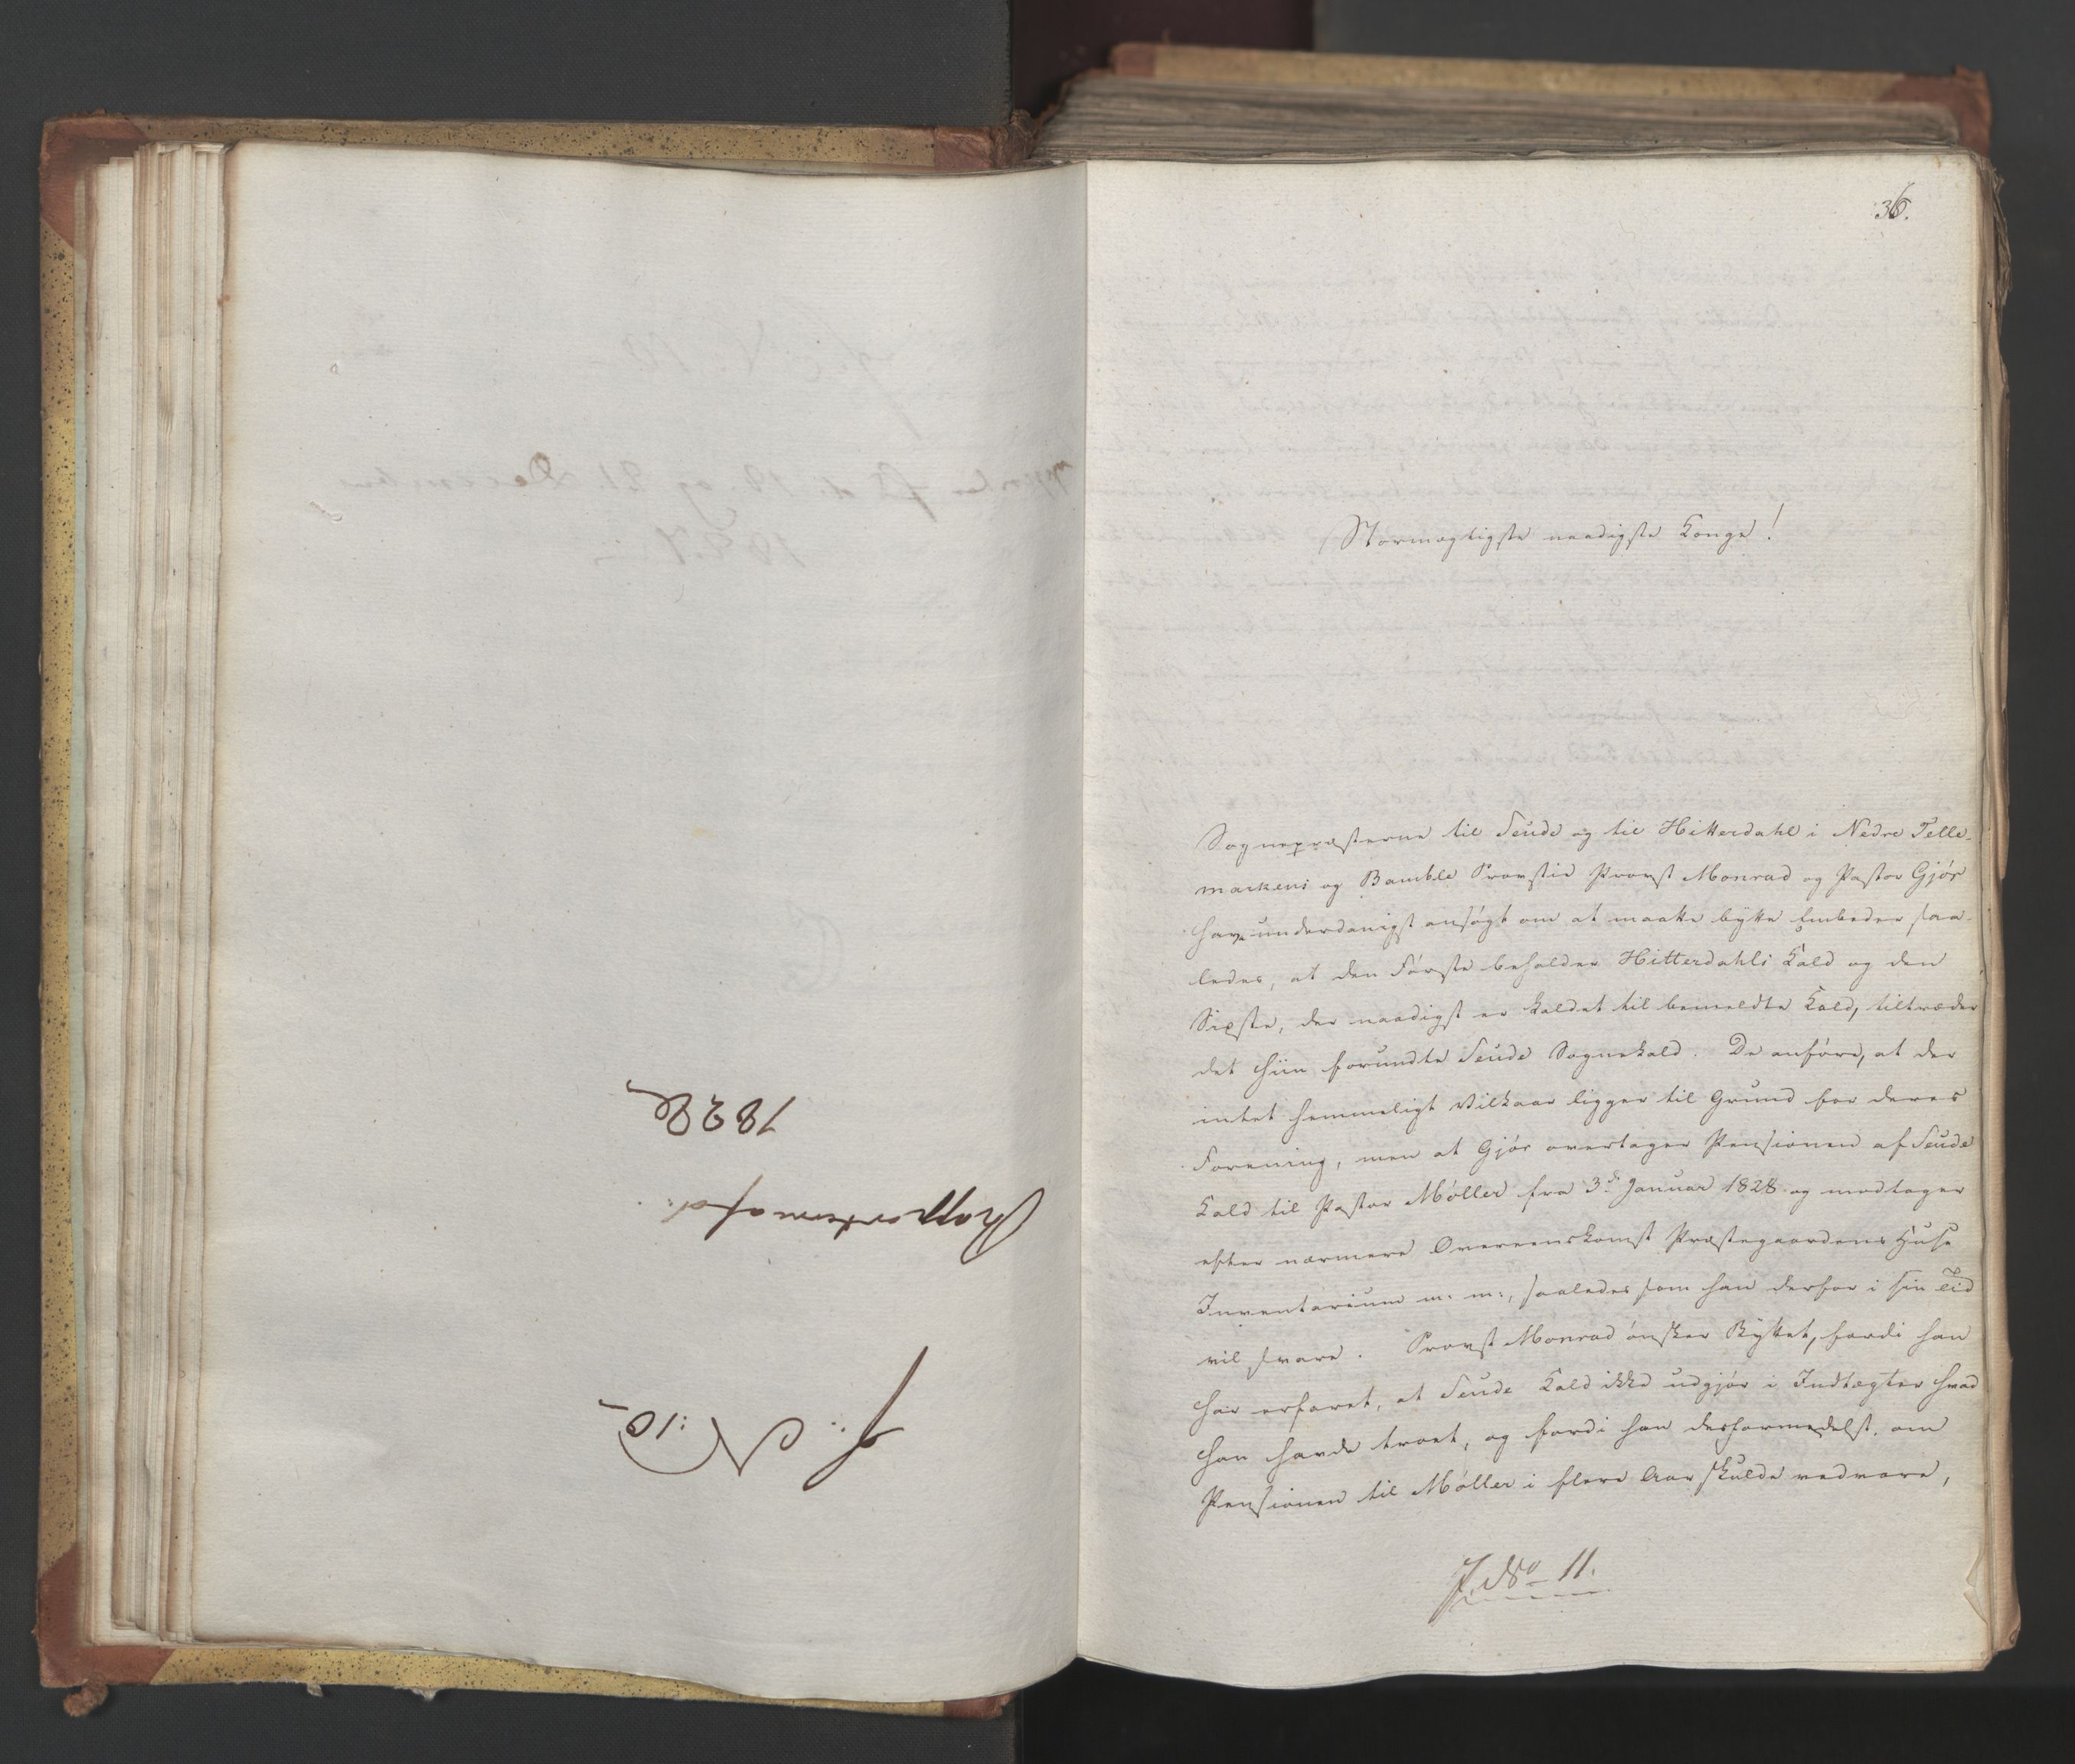 J: N: 10
Rapporteres af d:
1828
36.
Stormægtigste naadigste Konge!
Sognepræsterne til Seude og til Hitterdahl i Nedre Telle-
markens og Bamble Provstie Provst Monrad og Pastor Gjør
have underdanigst ansøgt om at maatte bytte Embeder saa-
ledes, at den Første beholder Hitterdahls Kald og den
Sidste, der naadigst er kaldet til bemeldte Kald, tiltræder
det hiin forundte Seude Sognekald. De anføre, at der
intet hemmeligt Vilkaar ligger til Grund for deres
Forening, men at Gjør overtager Pensionen af Seude
Kald til Pastor Møller fra 3de Januar 1828 og modtager
efter nærmere Overeenskomst Præstegaardens Huse
Inventarium m: m:, saaledes som han derfor i sin Tid
vil svare. Provst Monrad ønsker Byttet, fordi han
har erfaret, at Seude Kald ikke udgjør i Indtægter hvad
han havde troet, og fordi han desformedelst, om
Pensionen til Møller i flere Aar skulde vedvare,
J. No 11.